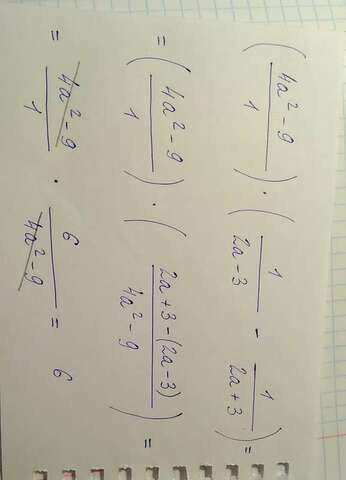 ( (4a² - 9)/1 ) · ( 1/(2a - 3) - 1/(2a + 3) ) =
= ( (4a² - 9)/1 ) · ( (2a + 3 - (2a - 3))/(4a² - 9) ) =
= (4a² - 9)/1 · 6/(4a² - 9) = 6